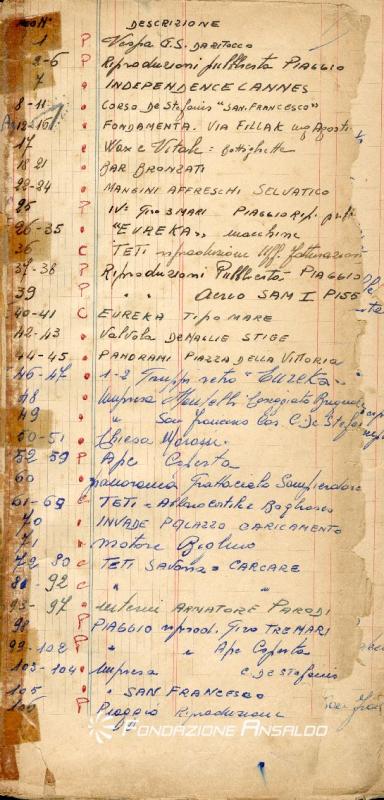 N° DESCRIZIONE
1 P Vespa G.S. DARITOCCO
2-6 P Riproduzioni pubblicità PIAGGIO
7 INDEPENDENCE CANNES
8-11 CORSO De Stefanis "SAN. FRANCESCO"
12-16 FONDAMENTA. VIA FILLAK
17 Wax e Vitak = bottigliette
18 21 BAR BRONZATI
22-24 MANGINI AFFRESCHI SELVATICO
25 P IV° Giro 3 MARI PIAGGIO
26-35 "EUREKA" macchine
36 C TETI riproduzione Uff. fatturazioni
37-38 P Riproduzioni Pubblicità PIAGGIO
39 P " " Aereo SAM I P155
40-41 C EUREKA TIPO MARE
42-43 Valvola DENAGLIE STIGE
44-45 PANORAMI PIAZZA DELLA VITTORIA
46-47 1-2 Gruppi retro "Eureka"
48 Impresa
49 " San Francesco C. De Stefanis
50-51 Chiesa
52-59 P Ape Coperta
60 panorama Grattacielo Sampierdarena
61-69 C TETI =
70 INVADE PALAZZO CARICAMENTO
71 motore
72 80 C TETI SAVONA CARCARE
81-92 C " "
93-97 interni ARMATORE PARODI
98 P PIAGGIO riprod. Giro TRE MARI
99-102 P " " Ape Coperta
103-104 Impresa C. DE Stefanis
105 " SAN FRANCESCO
106 P Piaggio Riproduzione
FONDAZIONE ANSALDO